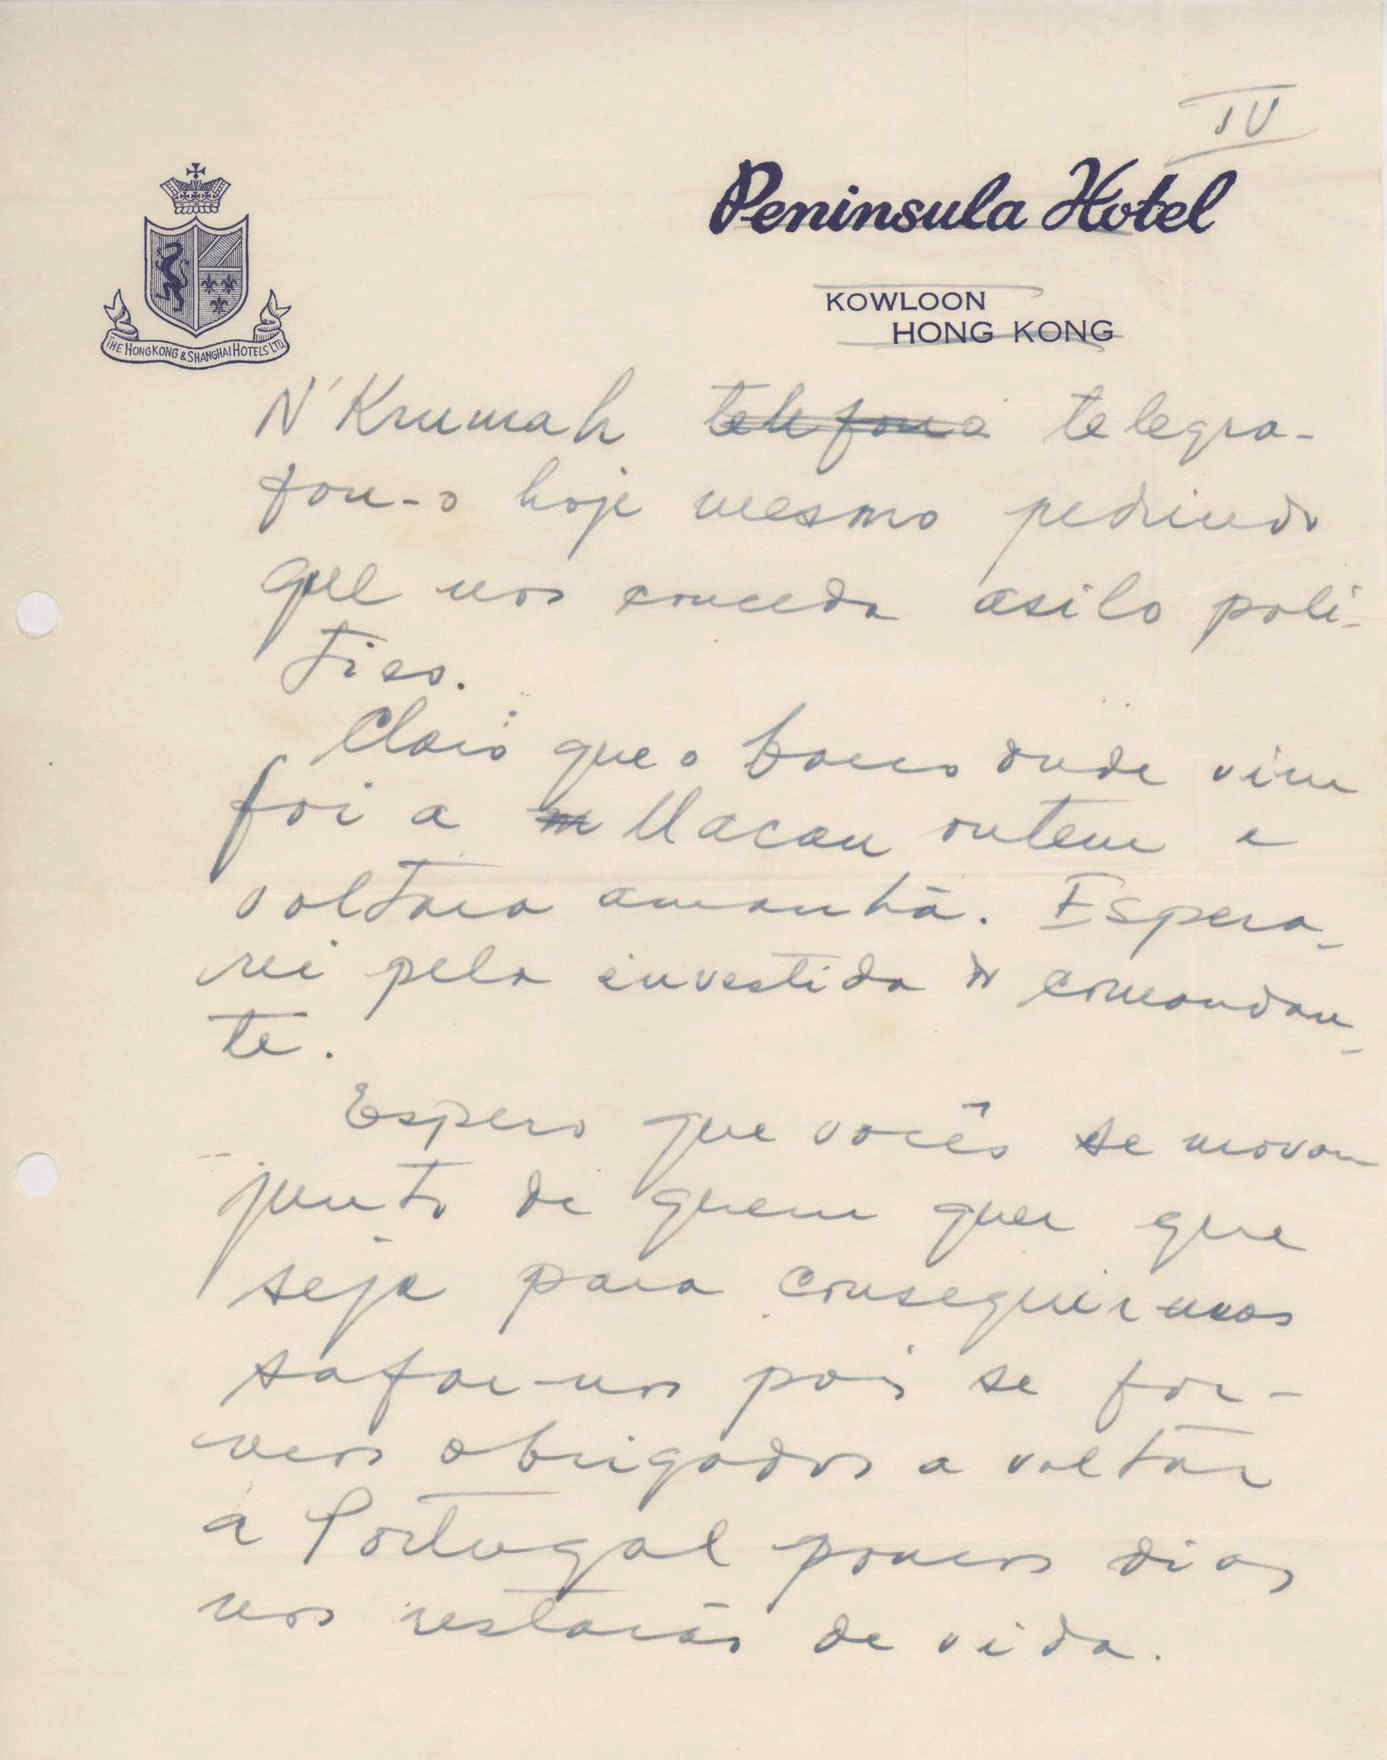 IV
Peninsula Hotel
KOWLOON
HONG KONG
THE HONGKONG & SHANGHAI HOTELS LTD.
N'Krumah telefona telegra-
fou-o hoje mesmo pedindo
que nos conceda asilo polí-
tico.
Claro que o barco onde vim
foi a m Macau ontem e
voltara amanhã. Espera-
rei pela investida do comandan-
te.
Espero que vocês se movam
junto de quem quer que
seja para conseguirmos
safar-nos pois se for-
mos obrigados a voltar
a Portugal poucos dias
nos restarão de vida.